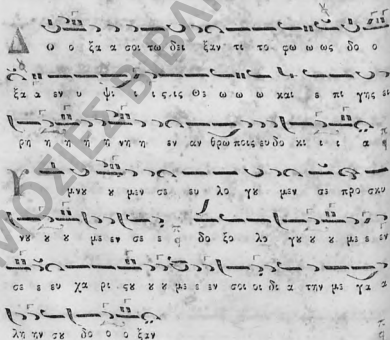 Δ ω ο ξα α σοι τω δει ξαν τι το φω ω ως δο ο
ξα α εν υ ψι ι ις οις Θε ω ω ω και ε πι γης ει
ρη η η η η νη η εν αν θρω ποις ευ δο κι ι ι α
Υ μνου ου μεν σε ευ λο γου μεν σε προ σκυ
νου ου ου με εν σε ε δο ξο λο γου ου ου με ε εν
σε ε ευ χα ρι ςου ου ου με ε εν σοι οι δι α την με γα α
λη ην σου δο ο ο ξαν